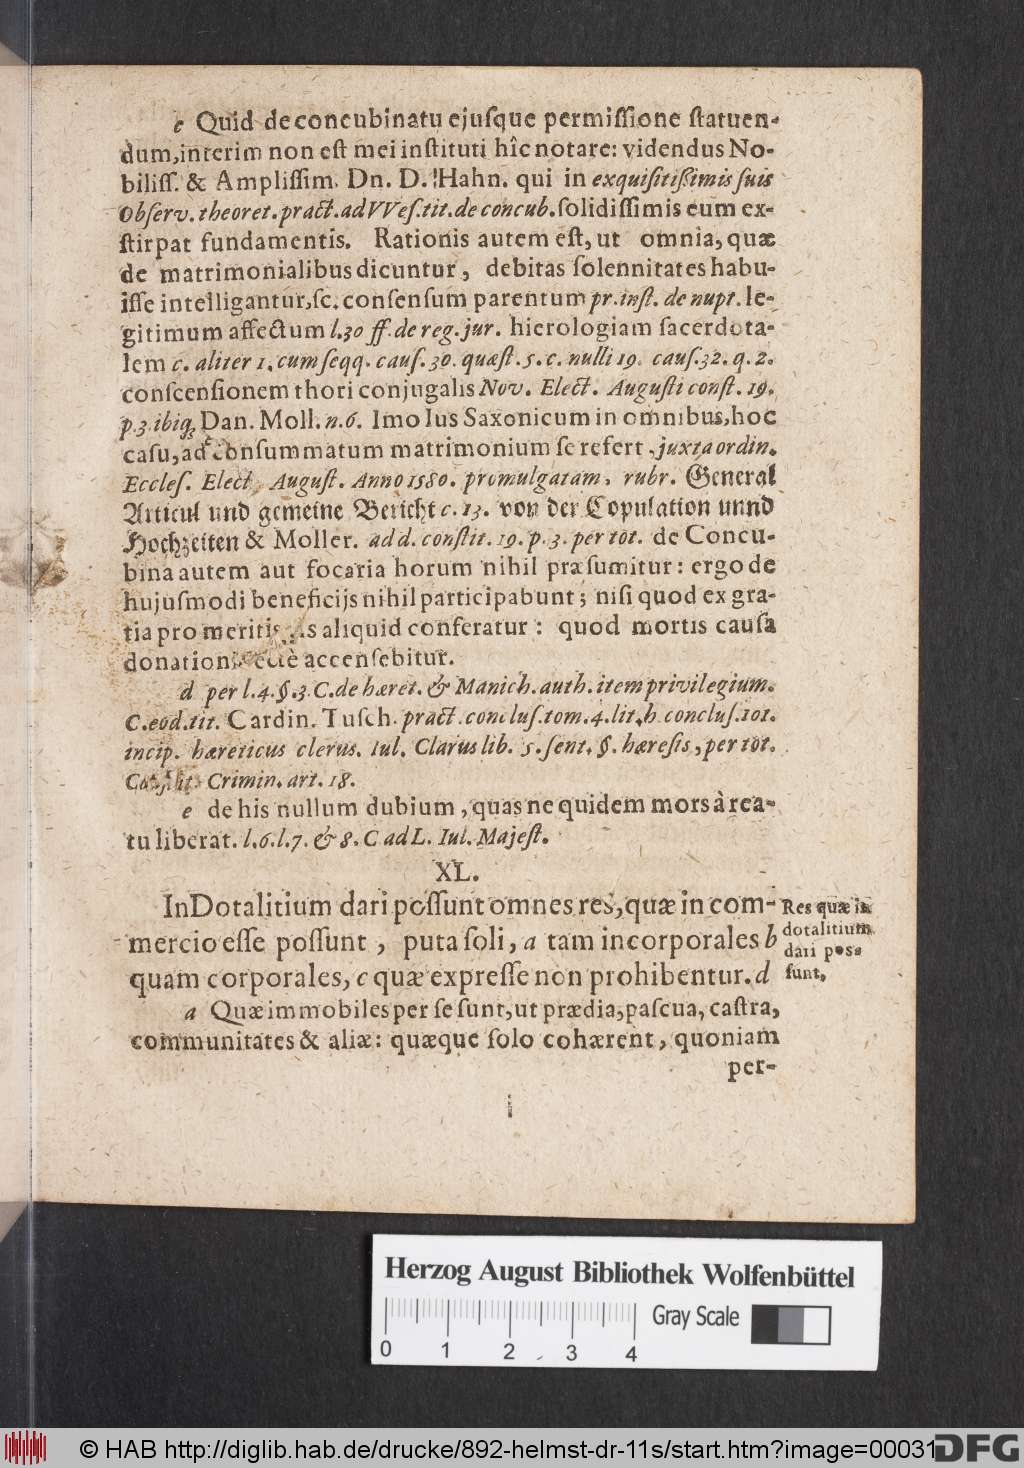 c Quid de concubinatu ejuſque permiſſione ſtatuen-
dum, interim non eſt mei inſtituti hîc notare: videndus No-
biliſſ. & Ampliſſim. Dn. D. Hahn. qui in exquiſitißimis ſuis
Obſerv. theoret. pract. ad VVeſ. tit. de concub. ſolidiſſimis eum ex-
ſtirpat fundamentis. Rationis autem eſt, ut omnia, quæ
de matrimonialibus dicuntur, debitas ſolennitates habu-
iſſe intelligantur, ſc. conſenſum parentum pr. inſt. de nupt. le-
gitimum affectum l. 30 ff. de reg. jur. hierologiam ſacerdota-
lem c. aliter 1. cum ſeqq. cauſ. 30. quæſt. 5. c. nulli 19. cauſ. 32. q. 2.
conſcenſionem thori conjugalis Nov. Elect. Auguſti conſt. 19.
p. 3. ibiq; Dan. Moll. n. 6. Imo Ius Saxonicum in omnibus, hoc
caſu, ad conſummatum matrimonium ſe refert, juxta ordin.
Eccleſ. Elect. Auguſt. Anno 1580. promulgatam, rubr. General
Articul und gemeine Bericht c. 13. von der Copulation unnd
Hochzeiten & Moller. ad d. conſtit. 19. p. 3. per tot. de Concu-
bina autem aut focaria horum nihil præſumitur: ergo de
hujuſmodi beneficijs nihil participabunt; niſi quod ex gra-
tia pro meritis aliquid conferatur: quod mortis cauſa
donation accenſebitur.
d per l. 4. §. 3. C. de hæret. & Manich. auth. item privilegium.
C. eod. tit. Cardin. Tuſch. pract. concluſ. tom. 4. lit. h. concluſ. 101.
incip. hæreticus clerus. Iul. Clarus lib. 5. ſent. §. hæreſis, per tot.
Crimin. art. 18.
e de his nullum dubium, quas ne quidem mors à rea-
tu liberat. l. 6. l. 7. & 8. C ad L. Iul. Majeſt.
XL.
In Dotalitium dari poſſunt omnes res, quæ in com-
mercio eſſe poſſunt, puta ſoli, a tam incorporales b
quam corporales, c quæ expreſſe non prohibentur. d
Res quæ in
dotalitium
dari poſ-
ſunt,
a Quæ immobiles per ſe ſunt, ut prædia, paſcua, caſtra,
communitates & aliæ: quæque ſolo cohærent, quoniam
per-
Herzog August Bibliothek Wolfenbüttel
Gray Scale
0 1 2 3 4
© HAB http://diglib.hab.de/drucke/892-helmst-dr-11s/start.htm?image=00031
DFG